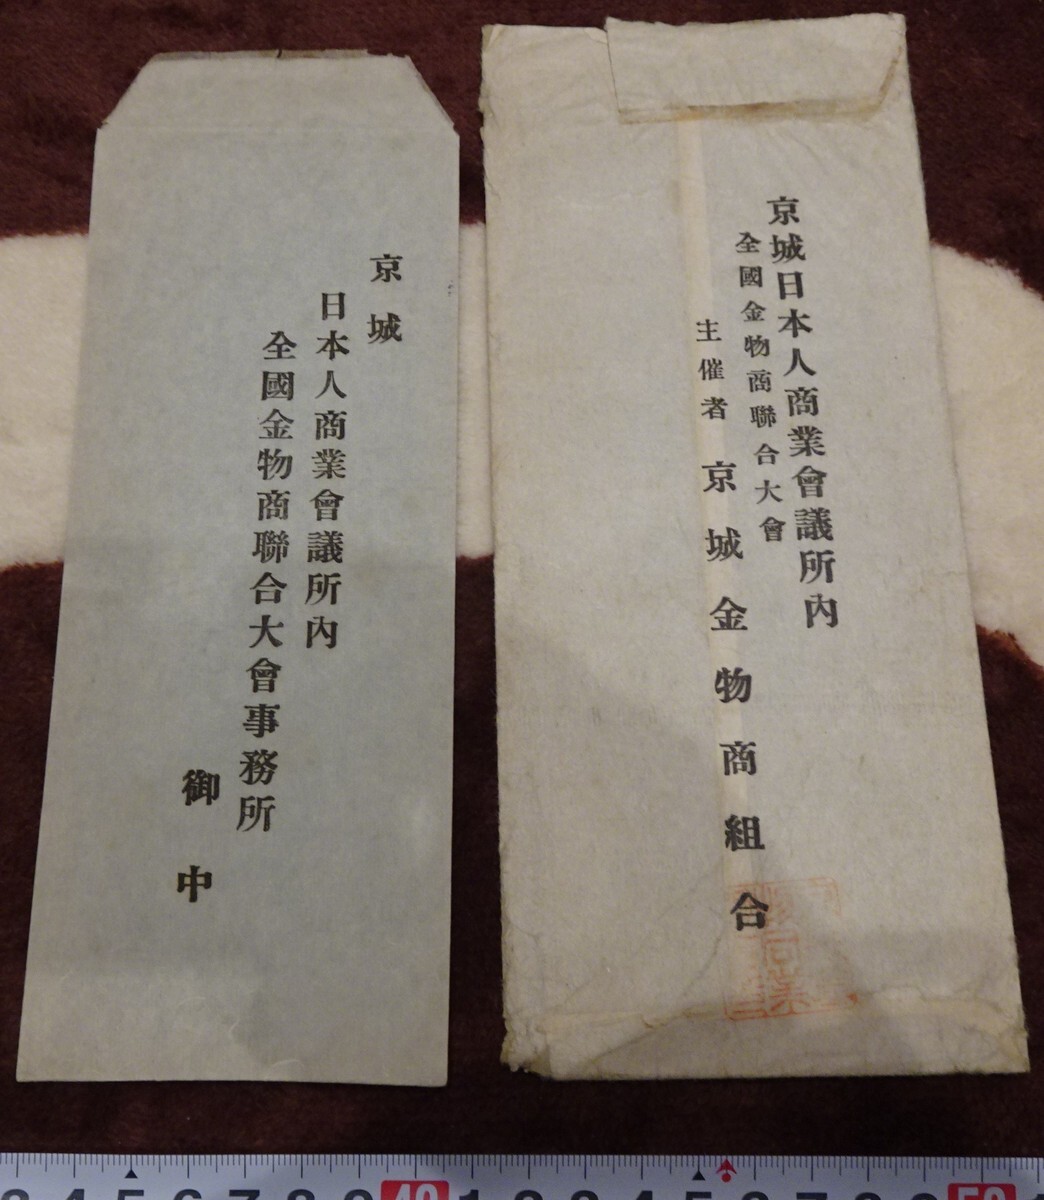 京城
日本人商業會議所內
全國金物商聯合大會事務所
御中
京城日本人商業會議所內
全國金物商聯合大會
主催者 京城金物商組合
4 5 6 7 8 9 40 1 2 3 4 5 6 7 8 9 50